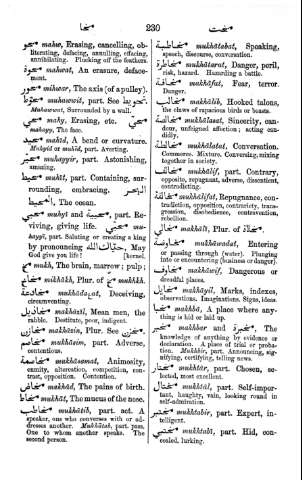 محا
230
محت
محو mahw, Erasing, cancelling, ob-
literating, defacing, annulling, effacing,
annihilating. Plucking off the feathers.
محوت mahwat, An erasure, deface-
ment.
محور mihwar, The axis (of a pulley).
محوط muhawwit, part. See تحويط
Muhawwat, Surrounded by a wall.
محي mahy, Erasing, etc.
mahayy, The face.
محيد mahīd, A bend or curvature.
Mahyid or muhīd, part. Averting.
محير muhayyir, part. Astonishing,
amusing.
محيط muhīt, part. Containing, sur-
rounding, embracing. البحر
المحيط, The ocean.
محيي muhyī and محييه, part. Re-
viving, giving life. محيي mu-
hayyi, part. Saluting or creating a king
by pronouncing حياك الله, May
God give you life! [kernel.
مخ mukh, The brain, marrow; pulp;
مخاخ mikhākh, Plur. of مخ mukhkh.
مخادعة mukhādaʻat, Deceiving,
circumventing.
مخاذيل makhāzīl, Mean men, the
rabble. Destitute, poor, indigent.
مخازن makhāzin, Plur. See مخزن
مخاصم mukhāsim, part. Adverse,
contentious.
مخاصمة mukhāsamat, Animosity,
enmity, altercation, competition, con-
trast, opposition. Contention.
مخاض makhād, The pains of birth.
مخاط mukhāt, The mucus of the nose.
مخاطب mukhātib, part. act. A
speaker, one who converses with or ad-
dresses another. Mukhātab, part. pass.
One to whom another speaks. The
second person.
مخاطبة mukhātabat, Speaking,
speech, discourse, conversation.
مخاطرة mukhātarat, Danger, peril,
risk, hazard. Hazarding a battle.
مخافة makhāfat, Fear, terror.
Danger.
مخالب makhālib, Hooked talons,
the claws of rapacious birds or beasts.
مخالصة mukhālasat, Sincerity, can-
dour, unfeigned affection; acting can-
didly.
مخالطة mukhālatat, Conversation.
Commerce. Mixture. Conversing, mixing
together in society.
مخالف mukhālif, part. Contrary,
opposite, repugnant, adverse, dissentient,
contradicting.
مخالفة mukhālifat, Repugnance, con-
tradiction, opposition, contrariety, trans-
gression, disobedience, contravention,
rebellion.
مخالي makhālī, Plur. of مخلاة.
مخاوضة mukhāwadat, Entering
or passing through (water). Plunging
into or encountering (business or danger).
مخاوف makhāwif, Dangerous or
dreadful places.
مخايل makhāyil, Marks, indexes,
observations. Imaginations. Signs, ideas.
مخبا makhbā, A place where any-
thing is hid or laid up.
مخبر makhbar and مخبرة, The
knowledge of anything by evidence or
declaration. A place of trial or proba-
tion. Mukhbir, part. Announcing, sig-
nifying, certifying, telling news.
مختار mukhtār, part. Chosen, se-
lected, most excellent.
مختال mukhtāl, part. Self-impor-
tant, haughty, vain, looking round in
self-admiration.
مختبر mukhtabir, part. Expert, in-
telligent.
مختبي mukhtabī, part. Hid, con-
cealed, lurking.